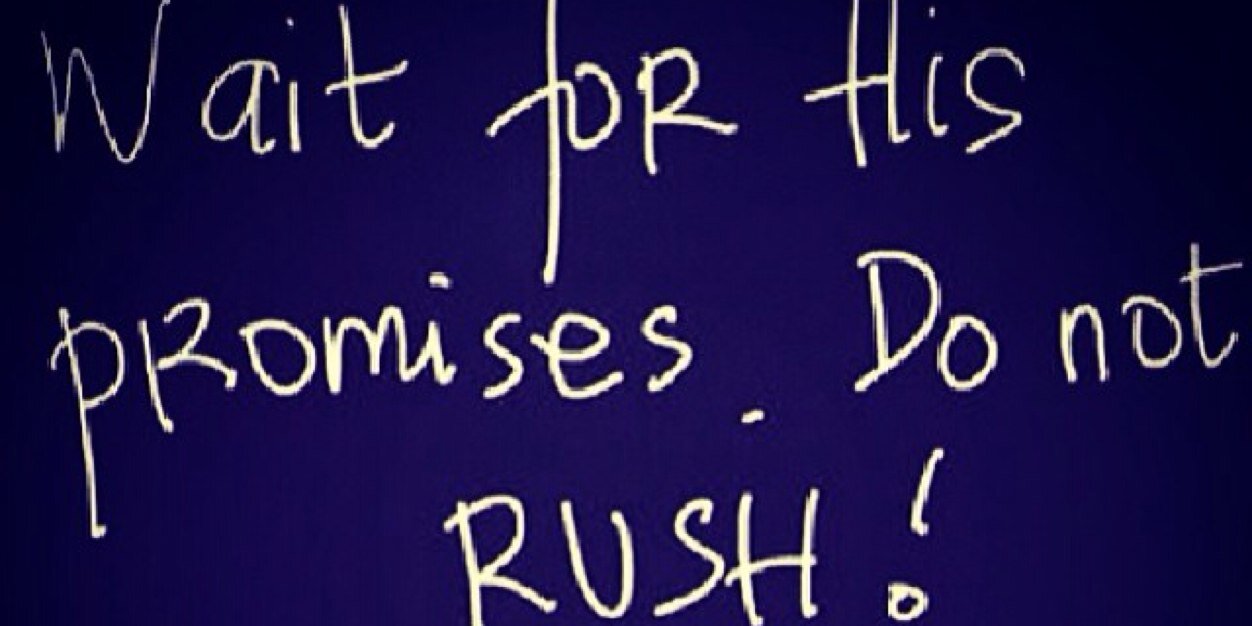 Wait for His
promises. Do not
RUSH!